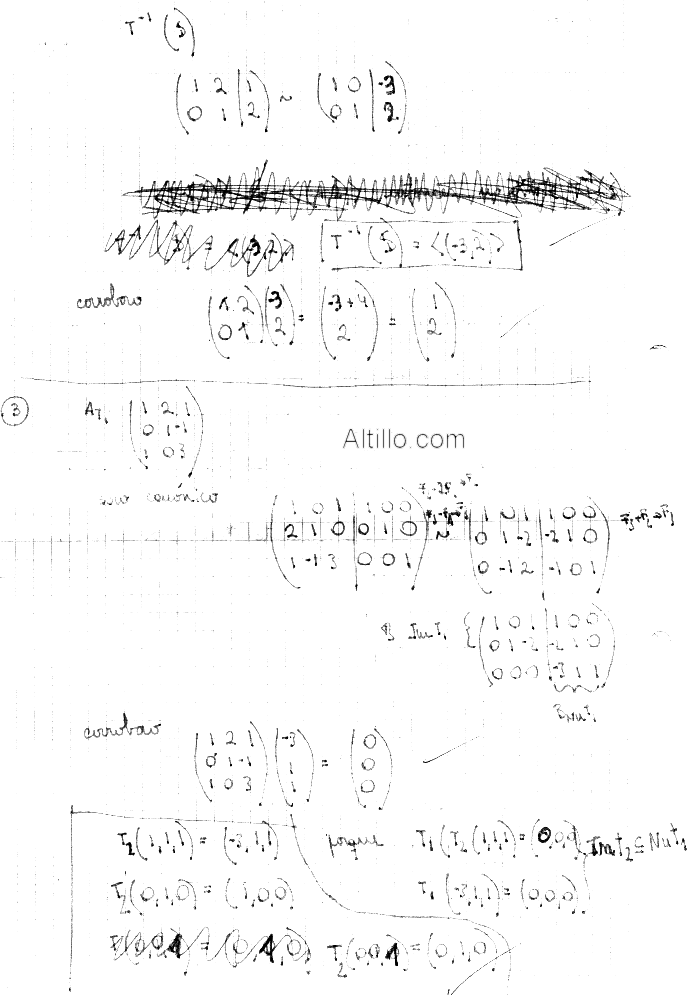 T⁻¹ (S)
(1 2 | 1) ~ (1 0 | -3)
(0 1 | 2) (0 1 | 2)
T⁻¹ (S) = <(-3,2)>
corroboro (1 2) (-3) = (-3+4) = (1)
(0 1) (2) (2) (2)
③ A T₁ (1 2 1)
(0 1 -1)
(1 0 3)
Altillo.com
uso canónico
(1 0 1 | 1 0 0) ~ (1 0 1 | 1 0 0) F₃+F₂→F₃
(2 1 0 | 0 1 0) (0 1 -2 | -2 1 0)
(1 -1 3 | 0 0 1) (0 -1 2 | -1 0 1)
B Im T₁ { (1 0 1 | 1 0 0)
(0 1 -2 | -2 1 0)
(0 0 0 | -3 1 1)
B Nu T₁
corroboro (1 2 1) (-3) = (0)
(0 1 -1) (1) (0)
(1 0 3) (1) (0)
T₂(1,1,1) = (-3,1,1) porque T₁(T₂(1,1,1) = (0,0,0) Im T₂ ⊆ Nu T₁
T₂(0,1,0) = (1,0,0) T₁(-3,1,1) = (0,0,0)
T₂(0,0,1) = (0,1,0)